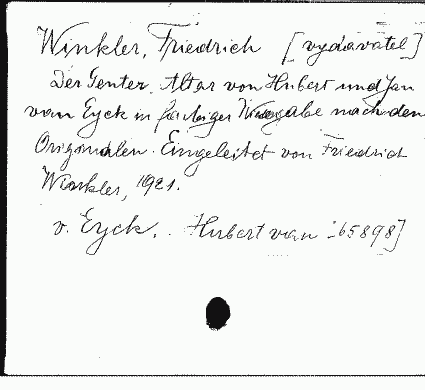 Winkler, Friedrich [vydavatel]
Der Genter Altar von Hubert und Jan
van Eyck in farbiger Wiedergabe nach den
Originalen. Eingeleitet von Friedrich
Winkler, 1921.
v. Eyck, Hubert van 65898]